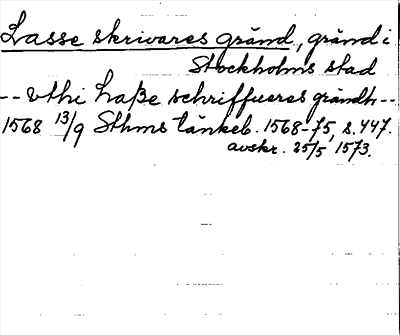 Lasse skrivares gränd, gränd i
Stockholms stad
-- vthi Laße schriffueres grändh --
1568 13/9 Sthms tänkeb. 1568-75, s. 447.
avskr. 25/5 1573.